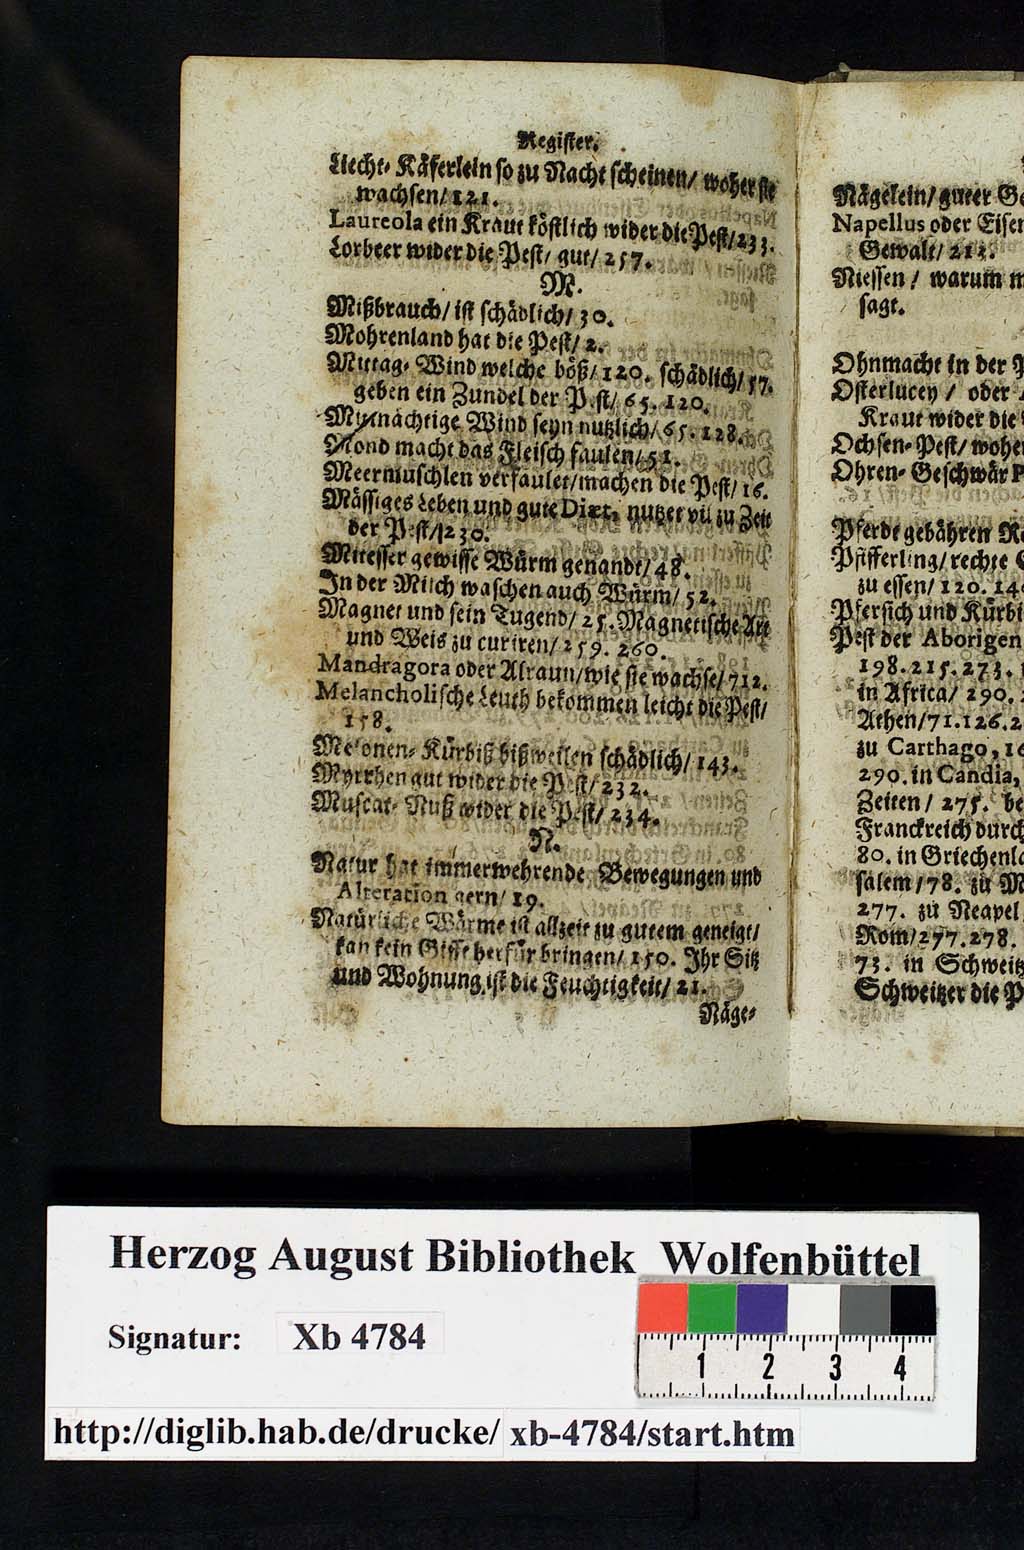 Register.
Liecht- Käferlein so zu Nacht scheinen/ woher sie
wachsen/ 121.
Laureola ein Kraut köstlich wider die Pest/ 233.
Lorbeer wider die Pest/ gut/ 257.
M.
Mißbrauch/ ist schädlich/ 30.
Mohrenland hat die Pest/ 2.
Mittag- Wind welche böß/ 120. schädlich/ 57.
geben ein Zundel der Pest/ 65. 120.
Mitnächtige Wind seyn nutzlich/ 65. 128.
Mond macht das Fleisch faulen/ 51.
Meermuschlen verfaulet/ machen die Pest/ 16.
Mässiges Leben und gute Diæt, nutzet vil zu Zeit
der Pest/ 230.
Mitesser gewisse Würm genandt/ 48.
In der Milch waschen auch Würm/ 52.
Magnet und sein Tugend/ 25. Magnetische Art
und Weis zu curiren/ 259. 260.
Mandragora oder Alraun/ wie sie wachse/ 712.
Melancholische Leuth bekommen leicht die Pest/
158.
Melonen- Kürbiß bißweilen schädlich/ 143.
Myrrhen gut wider die Pest/ 232.
Muscat- Nuß wider die Pest/ 234.
N.
Natur hat immerwehrende Bewegungen und
Alteration gern/ 19.
Natürliche Wärme ist allzeit zu gutem geneigt/
kan kein Gifft herfür bringen/ 150. Ihr Sitz
und Wohnung ist die Feuchtigkeit/ 21.
Näge-
Nägelein/ guter
Napellus oder
Gewalt/ 213.
Niessen / warum
sagt.
Ohnmacht in der
Osterlucey / oder
Kraut wider die
Ochsen- Pest/
Ohren- Geschwär
Pferde gebähren
Pfifferling/ rechte
zu essen/ 120.
Pfersich und
Pest der
198. 215. 273.
in Africa/ 290.
Athen/ 71. 126.
zu Carthago,
290. in Candia,
Zeiten / 275.
Franckreich
80. in
salem / 78. zu
277. zu Neapel
Rom/ 277. 278.
73. in
Schweitzer die
Herzog August Bibliothek Wolfenbüttel
Signatur: Xb 4784
1 2 3 4
http://diglib.hab.de/drucke/ xb-4784/start.htm